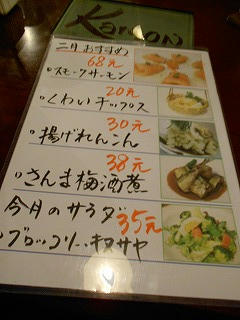 Karoon
二月 おすすめ
68元
スモークサーモン
20元
くわいチップス
30元
揚げれんこん
38元
さんま梅酒煮
今月のサラダ
35元
ブロッコリーキヌサヤ